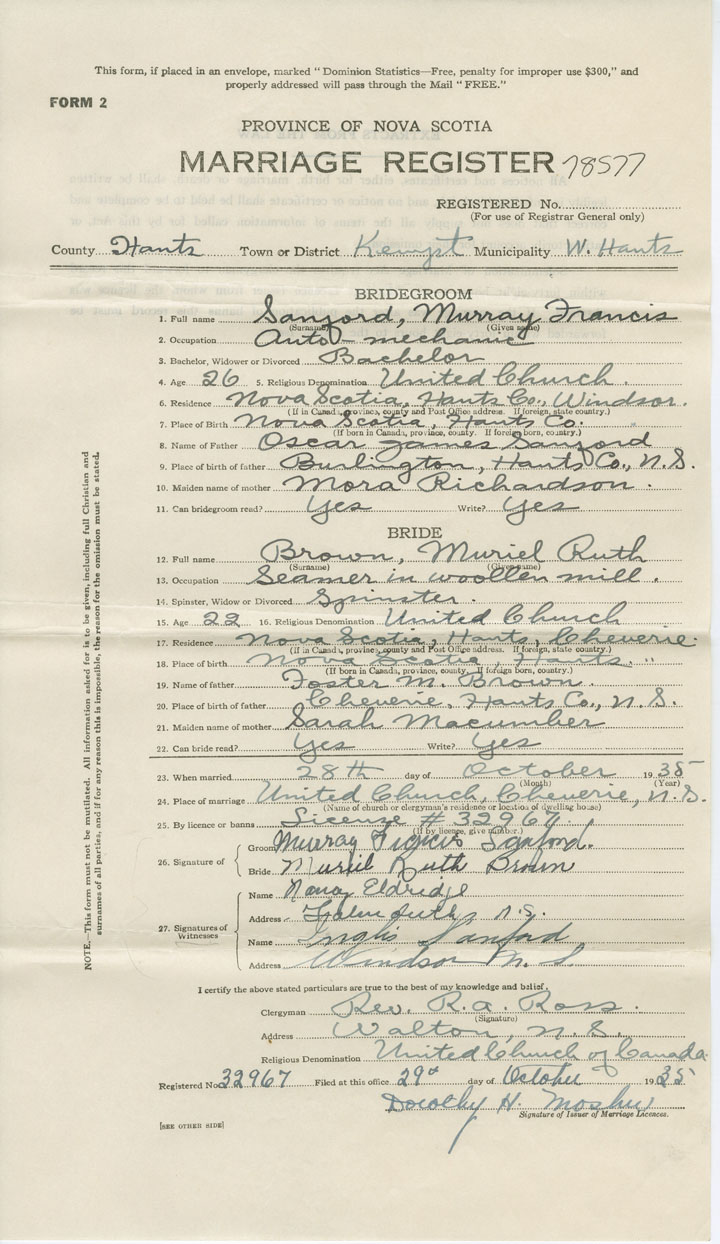 This form, if placed in an envelope, marked "Dominion Statistics—Free, penalty for improper use $300," and
properly addressed will pass through the Mail "FREE."
FORM 2
PROVINCE OF NOVA SCOTIA
MARRIAGE REGISTER 78577
REGISTERED No.
(For use of Registrar General only)
County Hants Town or District Kempt Municipality W. Hants
BRIDEGROOM
1. Full name Sanford, Murray Francis
(Surname) (Given name)
2. Occupation Auto-mechanic
3. Bachelor, Widower or Divorced Bachelor
4. Age 26 5. Religious Denomination United Church.
6. Residence Nova Scotia, Hants Co., Windsor.
(If in Canada, province, county and Post Office address. If foreign, state country.)
7. Place of Birth Nova Scotia, Hants Co.
(If born in Canada, province, county. If foreign born, country.)
8. Name of Father Oscar James Sanford
9. Place of birth of father Burlington, Hants Co., N.S.
10. Maiden name of mother Mora Richardson.
11. Can bridegroom read? Yes Write? Yes
BRIDE
12. Full name Brown, Muriel Ruth
(Surname) (Given name)
13. Occupation Seamer in woollen mill.
14. Spinster, Widow or Divorced Spinster.
15. Age 22 16. Religious Denomination United Church
17. Residence Nova Scotia, Hants, Cheverie.
(If in Canada, province, county and Post Office address. If foreign, state country.)
18. Place of birth Nova Scotia, Hants. "
(If born in Canada, province, county. If foreign born, country.)
19. Name of father Foster M. Brown.
20. Place of birth of father Cheverie, Hants Co., N.S.
21. Maiden name of mother Sarah Macumber
22. Can bride read? Yes Write? Yes
23. When married 28th day of October 1935
(Month) (Year)
24. Place of marriage United Church, Cheverie, N.S.
(Name of church or clergyman's residence or location of dwelling house)
25. By licence or banns License # 32967.
(If by licence, give number.)
26. Signature of
Groom Murray Francis Sanford.
Bride Muriel Ruth Brown
27. Signatures of Witnesses
Name Nancy Eldridge
Address N.S.
Name Inglis Sanford
Address Windsor N.S
I certify the above stated particulars are true to the best of my knowledge and belief.
Clergyman Rev. R.A. Ross.
(Signature)
Address Walton, N.S.
Religious Denomination United Church of Canada.
Registered No. 32967 Filed at this office 29th day of October 1935
Dorothy H. Mosher
Signature of Issuer of Marriage Licences.
[SEE OTHER SIDE]
NOTE.—This form must not be mutilated. All information asked for is to be given, including full Christian and
surnames of all parties, and if for any reason this is impossible, the reason for the omission must be stated.